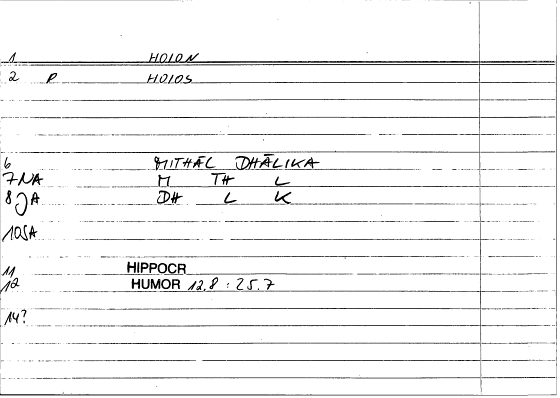 1 HOION
2 P HOIOS
6 MITHĀL DHĀLIKA
7 NA M TH L
8 JA DH L K
10 SA
11 HIPPOCR
12 HUMOR 12.8 : 25.7
14?